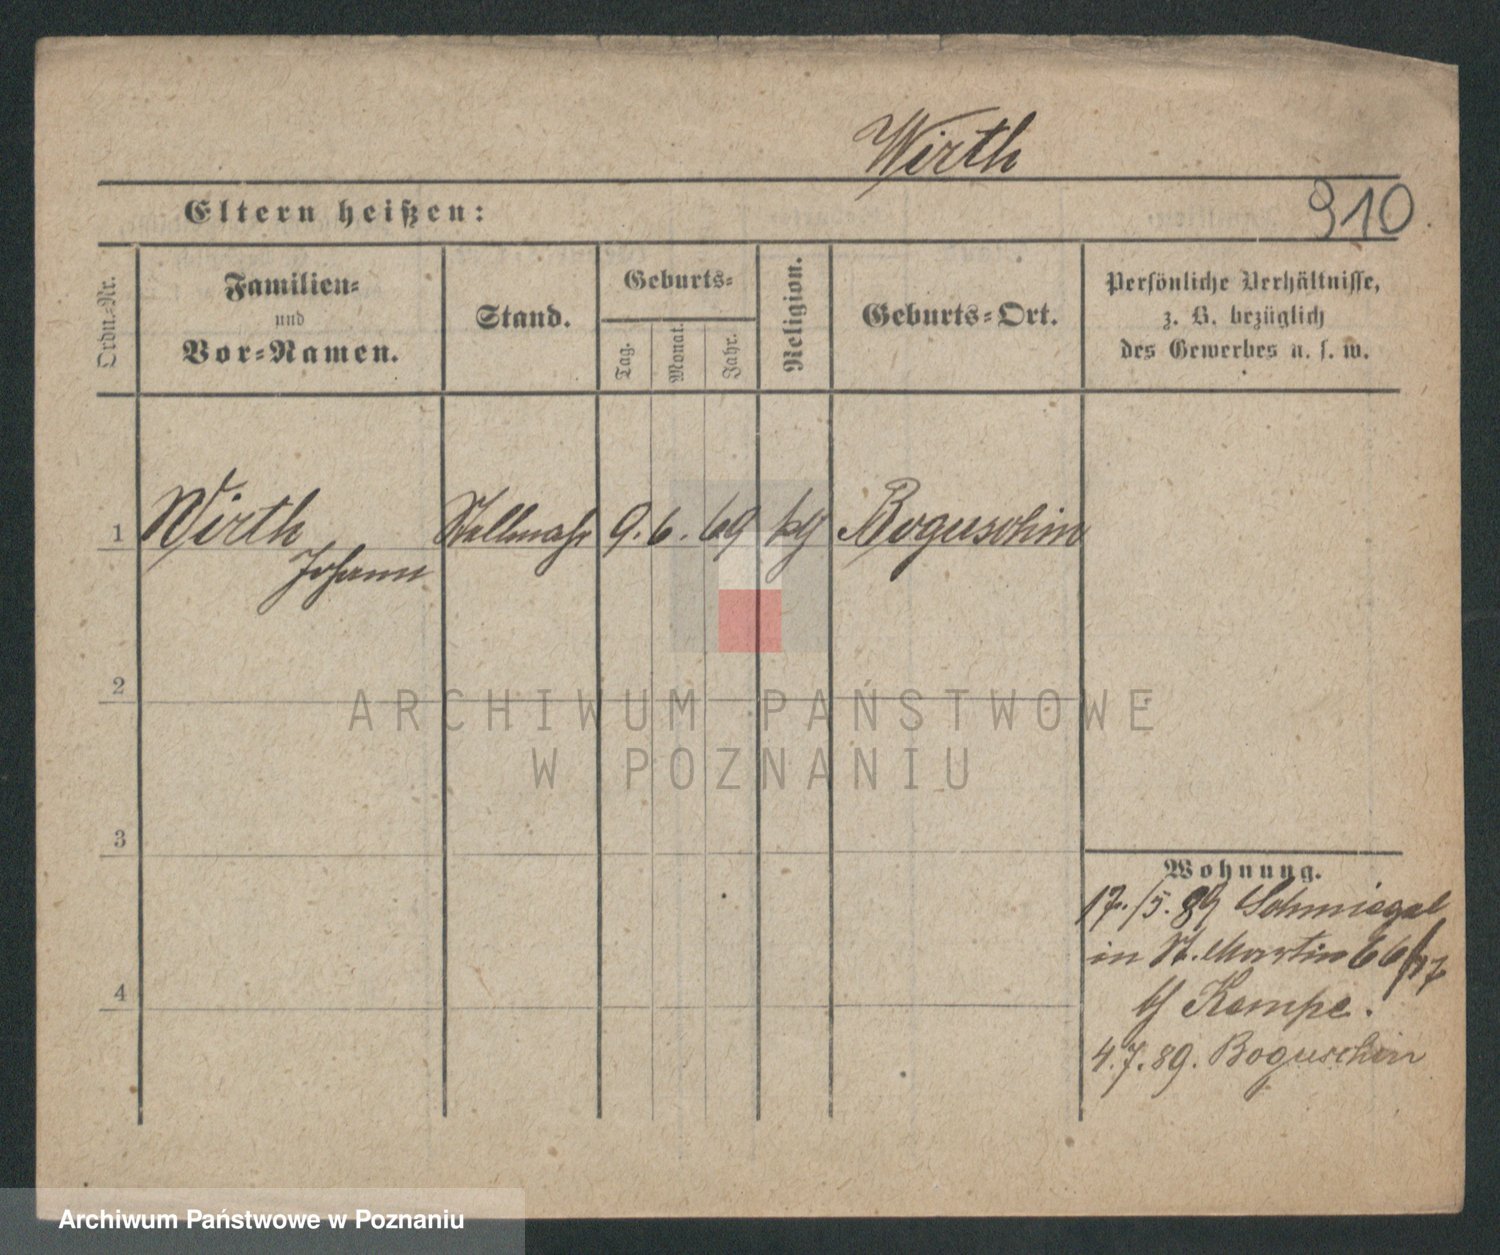 Wirth
Eltern heißen:
910.
Ordn.-Nr.
Familien-
und
Vor-Namen.
Stand.
Geburts-
Tag.
Monat.
Jahr.
Religion.
Geburts-Ort.
Persönliche Verhältnisse,
z. B. bezüglich
des Gewerbes u. s. w.
1 Wirth 9. 6. 69 Boguschin
Johann
2
ARCHIWUM PAŃSTWOWE
W POZNANIU
3
Wohnung.
17./5. 89 Schmiegel
in St. Martin 66/67
b/ Kempe.
4
4.7.89. Boguschin
Archiwum Państwowe w Poznaniu